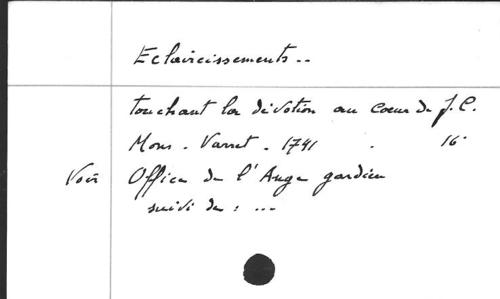 Eclaircissements..
touchant la dévotion au Coeur de J.C.
Mons. Varret. 1741 . 16°
Voir Office de l'Ange gardien
suivi de : ...